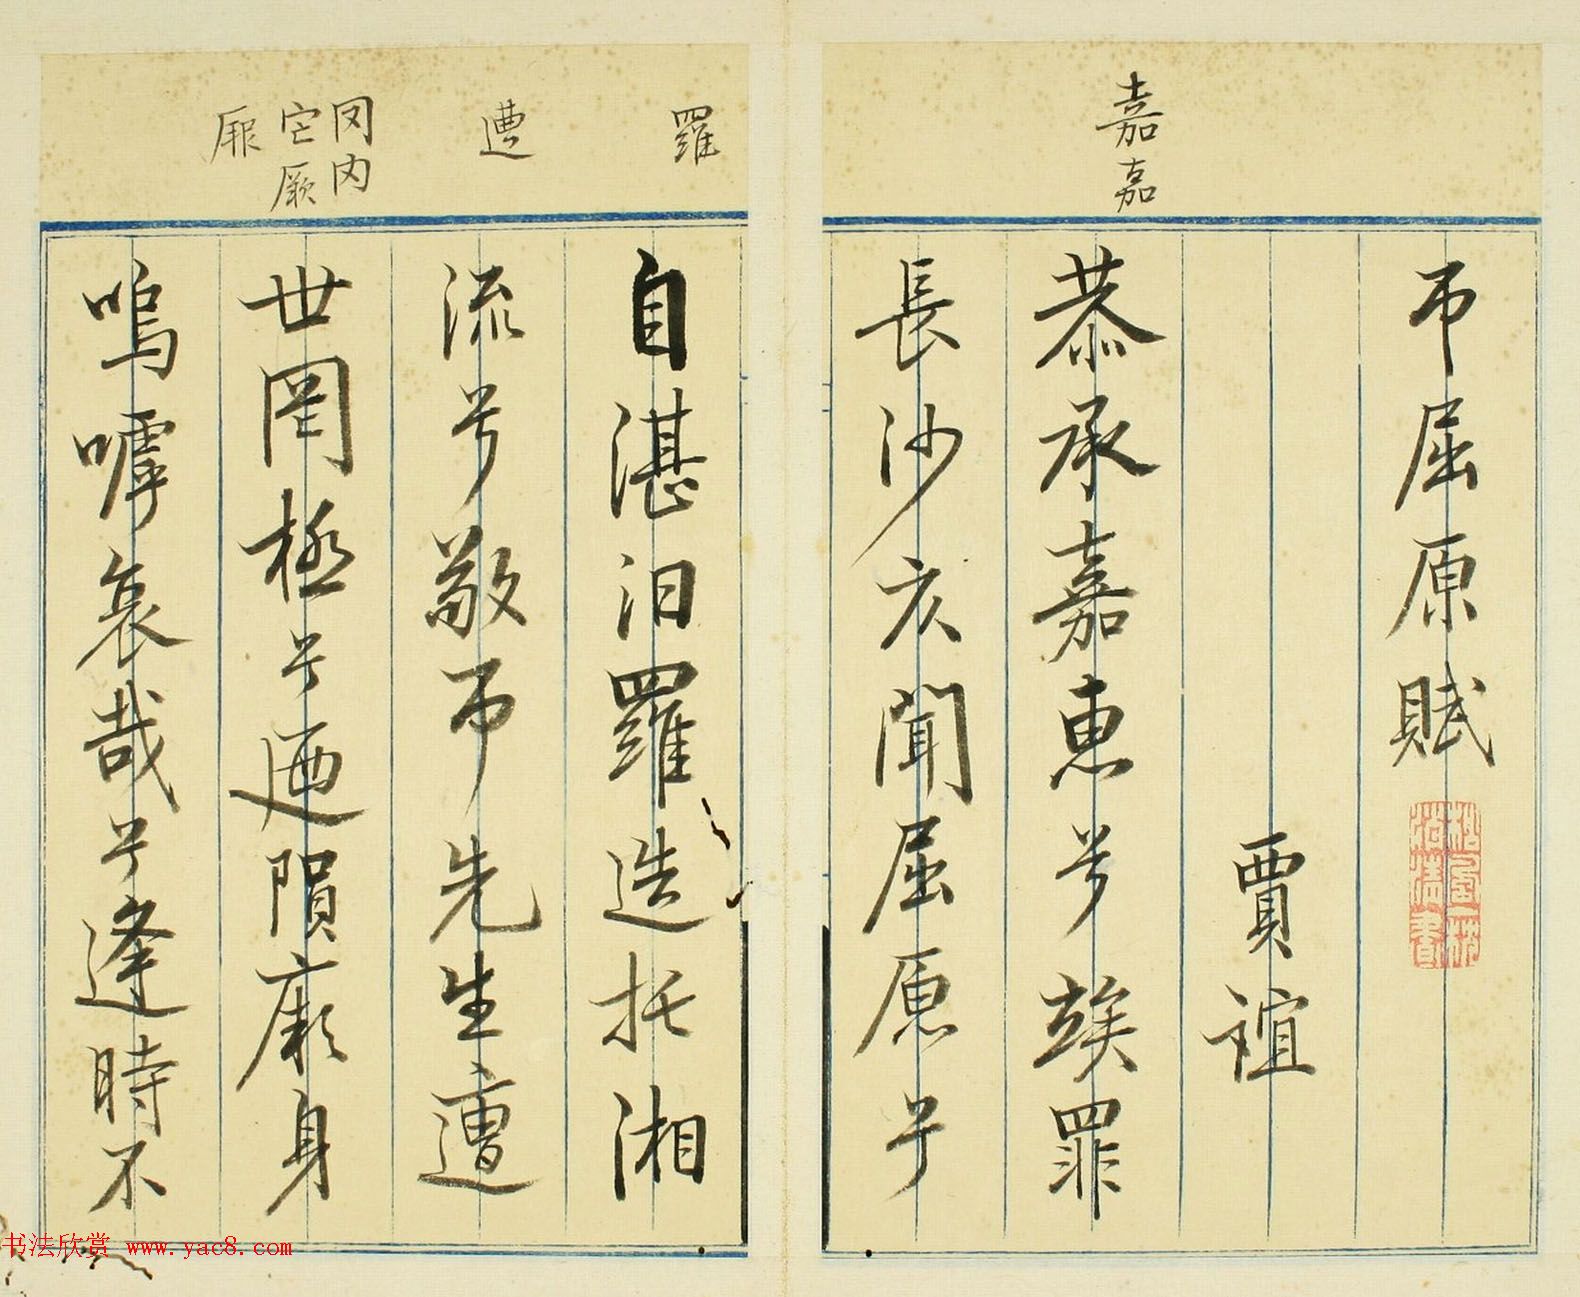 嘉嘉
弔屈原賦
賈誼
恭承嘉惠兮竢罪
長沙仄聞屈原兮
羅
遭
它厥
自湛汨羅造托湘
流兮敬弔先生遭
世罔極兮迺隕厥身
嗚嘑哀哉兮逢時不
书法欣赏 www.yac8.com